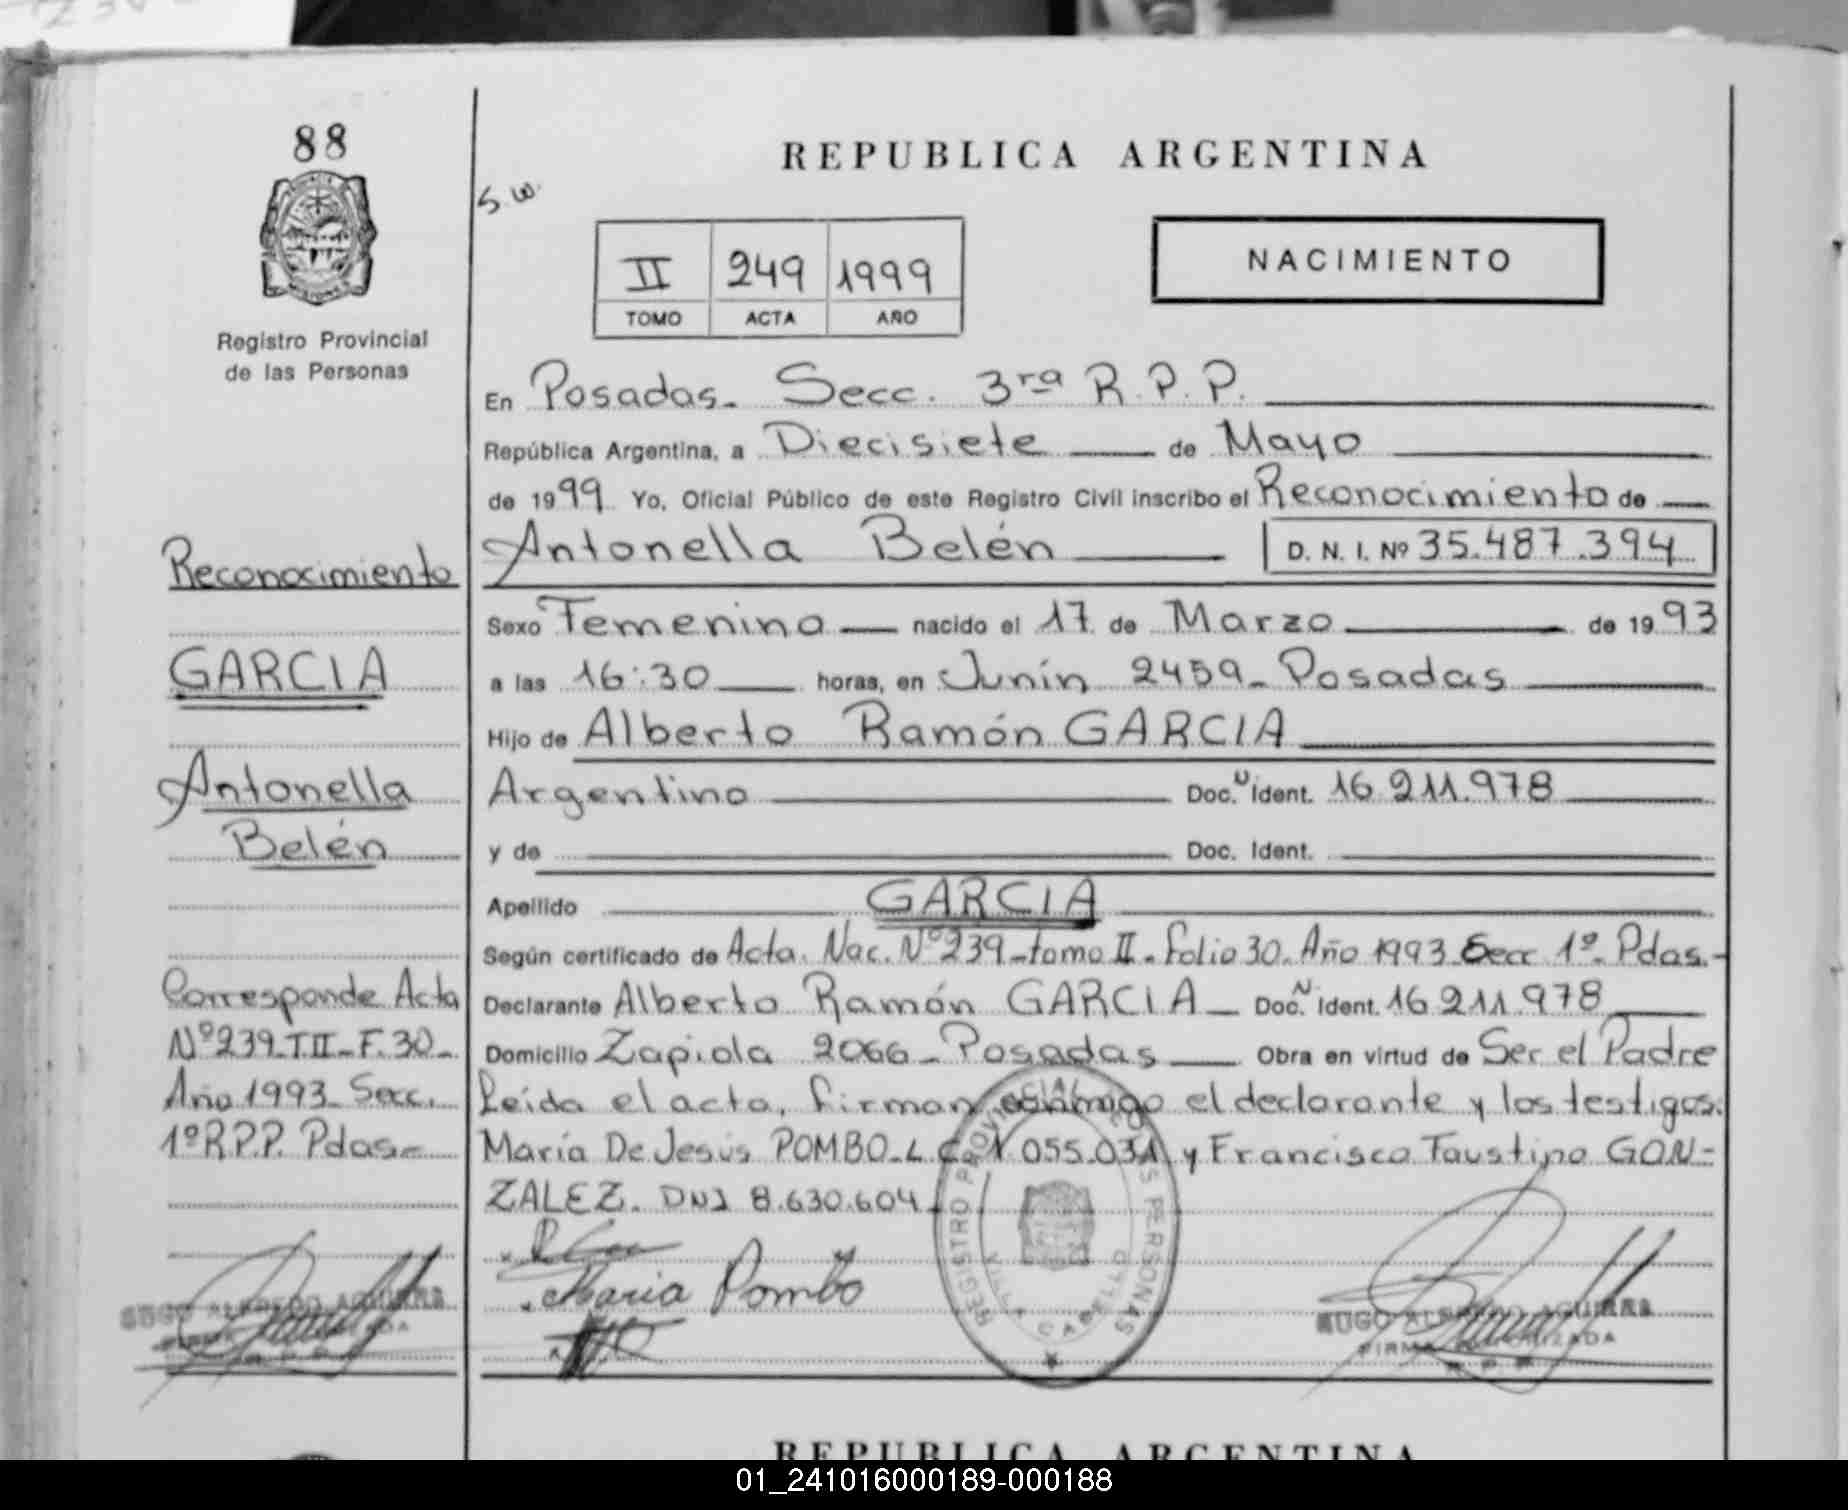 88
Registro Provincial
de las Personas
Reconocimiento
GARCIA
Antonella
Belén
Corresponde Acta
Nº239-TII-F.30-
Año 1993-Secc.
1ºR.P.P. Pdas-
HUGO ALFREDO AGUIRRE
S.W.
REPUBLICA ARGENTINA
II 249 1999
TOMO ACTA AÑO
NACIMIENTO
En Posadas- Secc. 3ra R.P.P.
República Argentina, a Diecisiete de Mayo
de 1999 Yo, Oficial Público de este Registro Civil inscribo el Reconocimiento de
Antonella Belén D. N. I. Nº 35.487.394
Sexo Femenino nacido el 17 de Marzo de 1993
a las 16:30 horas, en Junín 2459- Posadas
Hijo de Alberto Ramón GARCIA
Argentino Doc. N Ident. 16.211.978
y de Doc. Ident.
Apellido GARCIA
Según certificado de Acta. Nac. Nº239-tomo II-folio 30. Año 1993 Secc 1º. Pdas.-
Declarante Alberto Ramón GARCIA- Doc. N Ident. 16.211.978
Domicilio Zapiola 2066-Posadas Obra en virtud de Ser el Padre
Leída el acta, firman conmigo el declarante y los testigos.
María De Jesús POMBO-L.C. 1.055.031 y Francisco Faustino GON-
ZALEZ. DNI 8.630.604.
Maria Pombo
REGISTRO PROVINCIAL DE LAS PERSONAS
VILLA CABELLO
HUGO ALFREDO AGUIRRE
FIRMA AUTORIZADA
R. P. P.
REPUBLICA ARGENTINA
01_241016000189-000188